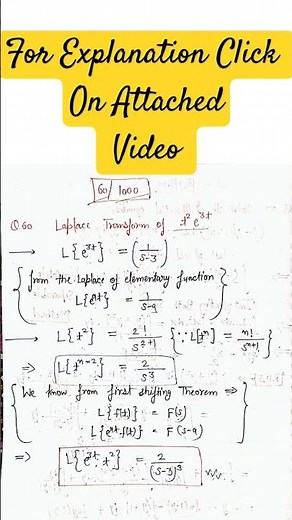 For Explanation Click
On Attached
Video
60/1000
Q.60 Laplace Transform of t² e^{3t}
→ L{e^{3t}} = (1/(s-3))
{from the Laplace of elementary function
L{e^{at}} = 1/(s-a)}
→ L{t²} = 2!/s^{2+1} {∵ L[t^n] = n!/s^{n+1}}
⇒ L{t^{n=2}} = 2/s³
{We know from first shifting Theorem ⇒
L{f(t)} = F(s)
L{e^{at}·f(t)} = F(s-a)}
⇒ L{e^{3t}·t²} = 2/(s-3)³